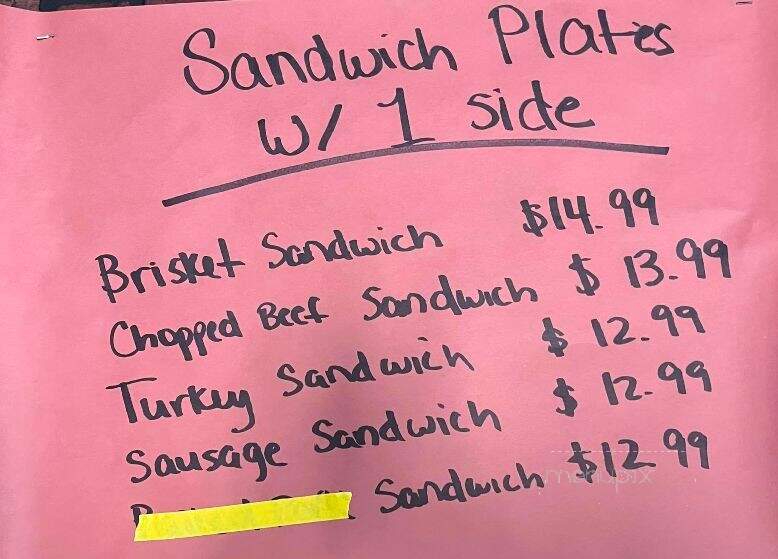 Sandwich Plates
w/ 1 side
Brisket Sandwich $14.99
Chopped Beef Sandwich $ 13.99
Turkey Sandwich $ 12.99
Sausage Sandwich $ 12.99
Sandwich $12.99